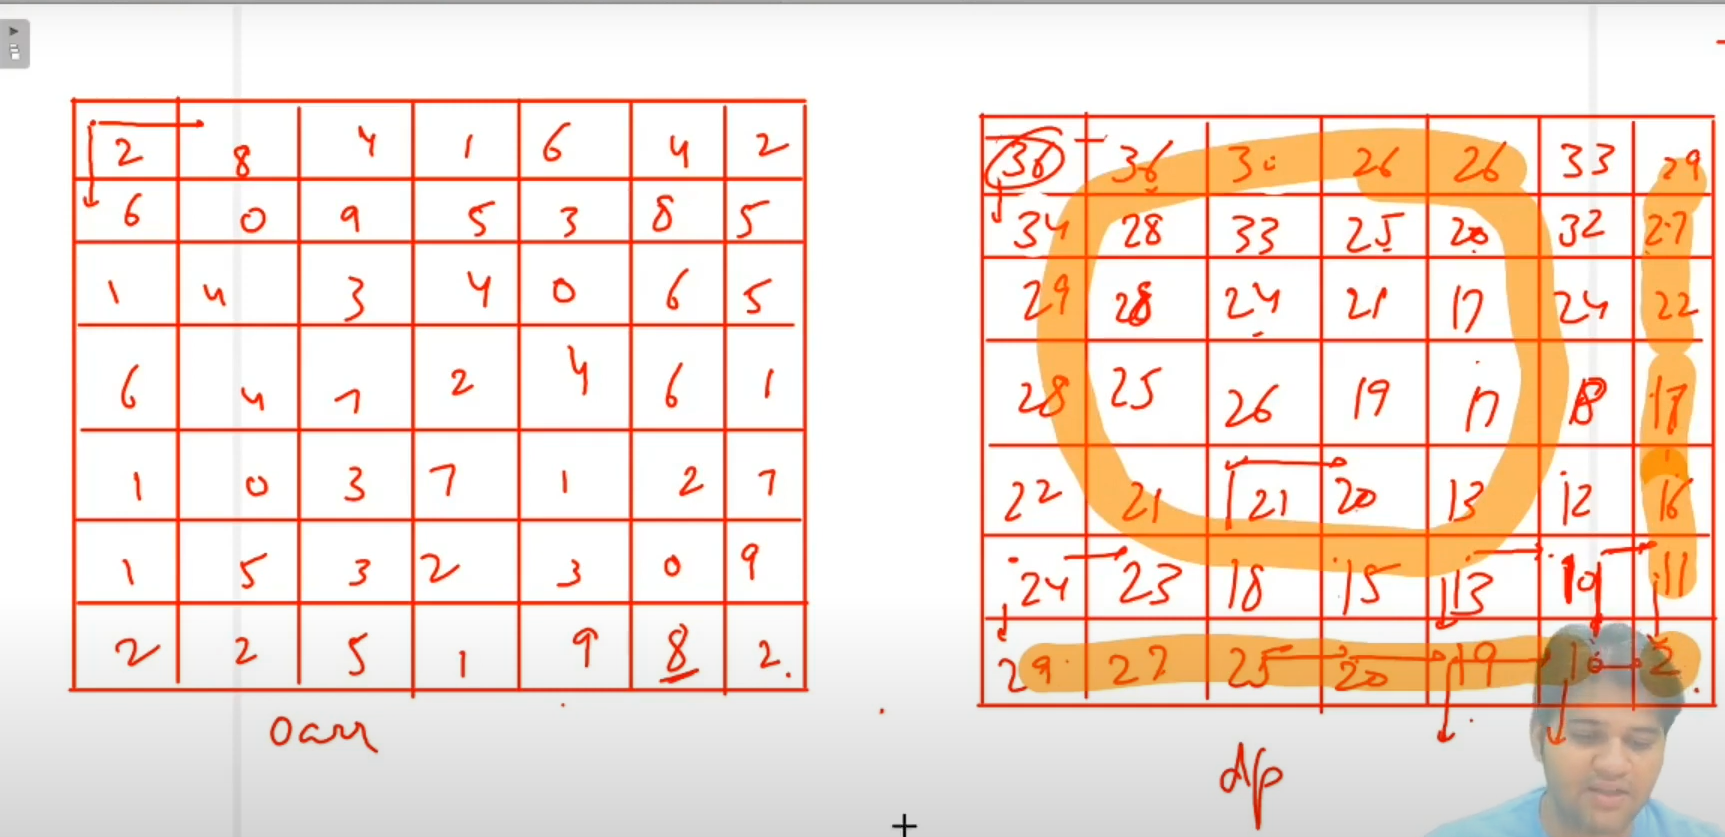 2 8 4 1 6 4 2
6 0 9 5 3 8 5
1 4 3 4 0 6 5
6 4 7 2 4 6 1
1 0 3 7 1 2 7
1 5 3 2 3 0 9
2 2 5 1 9 8 2.
oarr
36 36 30 26 26 33 29
34 28 33 25 20 32 27
29 28 24 21 17 24 22
28 25 26 19 17 18 17
22 21 21 20 13 12 16
24 23 18 15 13 10 11
29 27 25 20 19 10 2.
dp